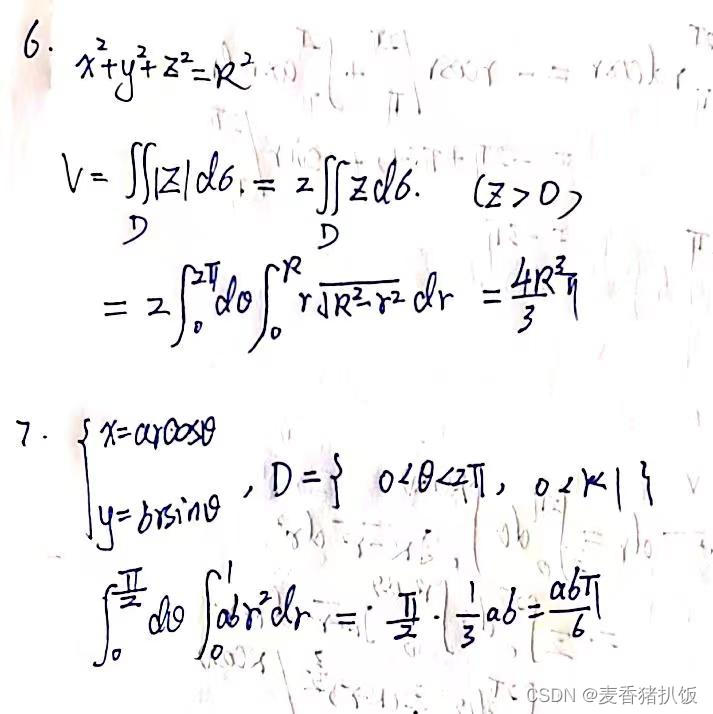 6. x²+y²+z²=R²
V = ∬_D |z| dσ. = 2∬_D z dσ. (z>0)
= 2∫₀^{2π} dθ ∫₀^R r√(R²-r²) dr = 4R³π/3
7. { x=arcosθ
y=brsinθ , D={ 0<θ<2π, 0<r<1 }
∫₀^{π/2} dθ ∫₀^1 abr² dr = π/2 · 1/3 ab = abπ/6
CSDN @麦香猪扒饭